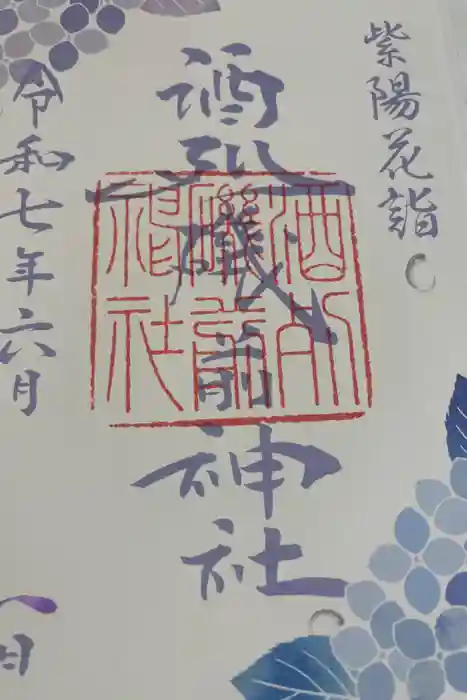 紫陽花詣
酒列磯前神社
令和七年六月
日
酒列
磯前
神社